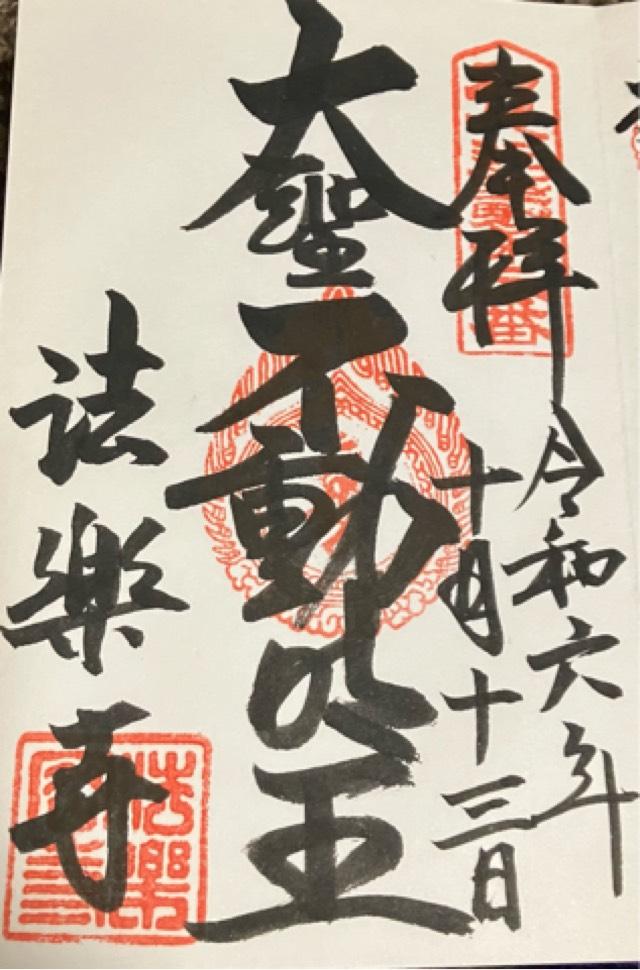 奉拝
令和六年
十月十三日
大聖不動明王
法樂寺